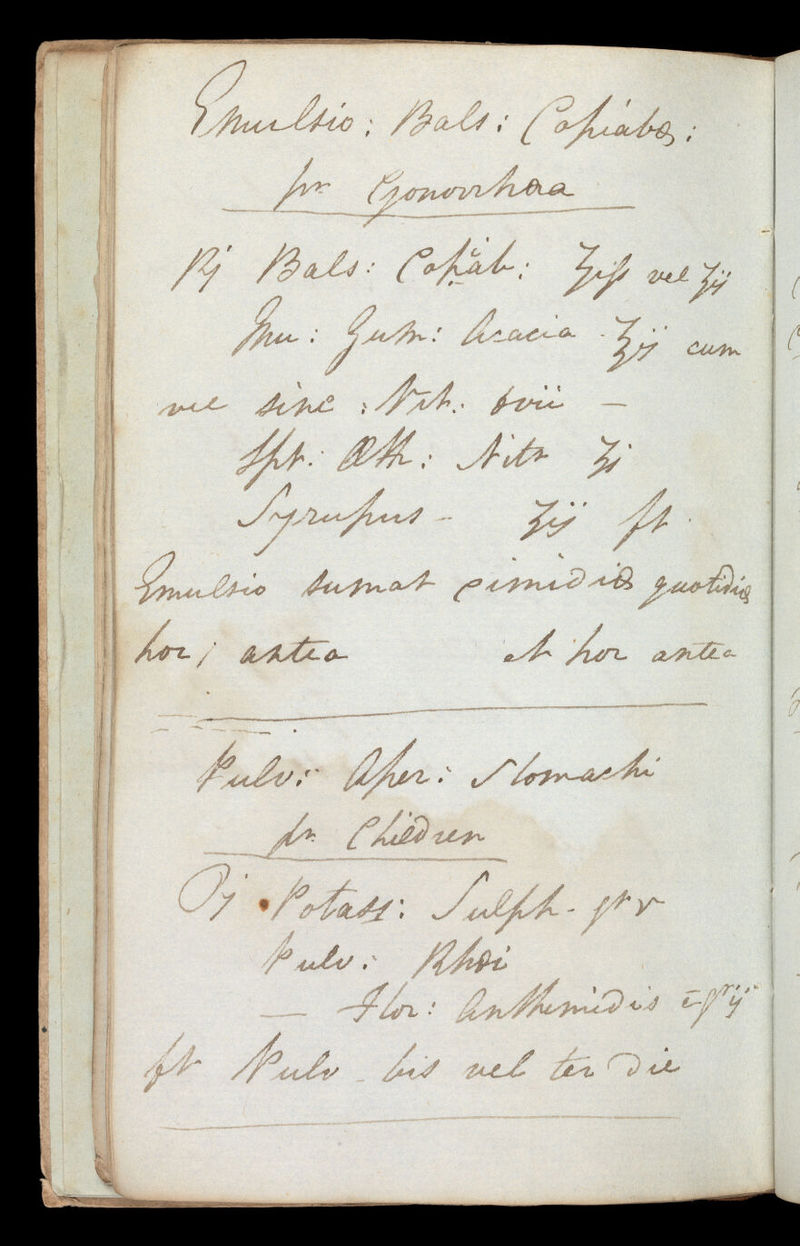 Emulsio: Bals: Copiabæ:
pr Gonorrhæa
℞ Bals: Copiab: ʒifs vel ʒij
Mu: Gum: Acacia ʒij cum
vel sine : Nit:
Spt: Æth: Nitr ʒj
Syrupus - ʒij ft.
Emulsio sumat quotidiæ
hor; antea et hor antea
Pulv: Aper: Stomachi
pr Children
℞ Potass: Sulph - gr v
Pulv: Rhæi
— Flor: Anthemidis grij
ft Pulv - bis vel ter die